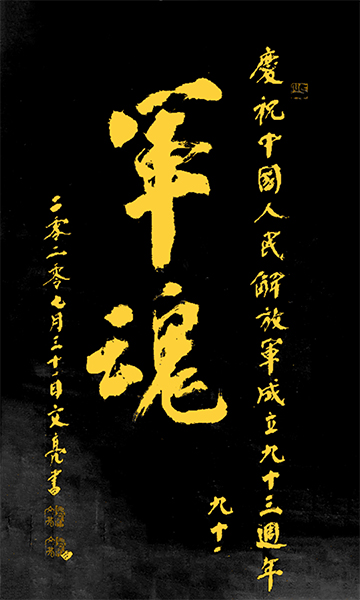 慶祝中國人民解放軍成立九十三週年
軍魂
九十一
二零二零七月三十一日文亮書